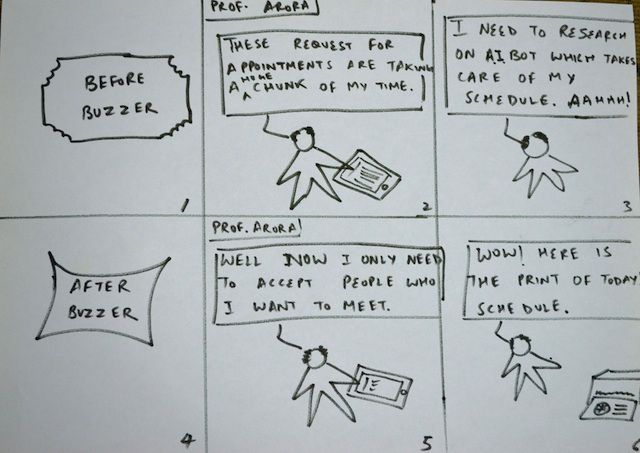 BEFORE
BUZZER
1
PROF. ARORA
THESE REQUEST FOR
APPOINTMENTS ARE TAKING
A HOME CHUNK OF MY TIME.
2
I NEED TO RESEARCH
ON AI BOT WHICH TAKES
CARE OF MY
SCHEDULE. AAHHH!
3
AFTER
BUZZER
4
PROF. ARORA!
WELL NOW I ONLY NEED
TO ACCEPT PEOPLE WHO
I WANT TO MEET.
5
WOW! HERE IS
THE PRINT OF TODAY
SCHEDULE.
6